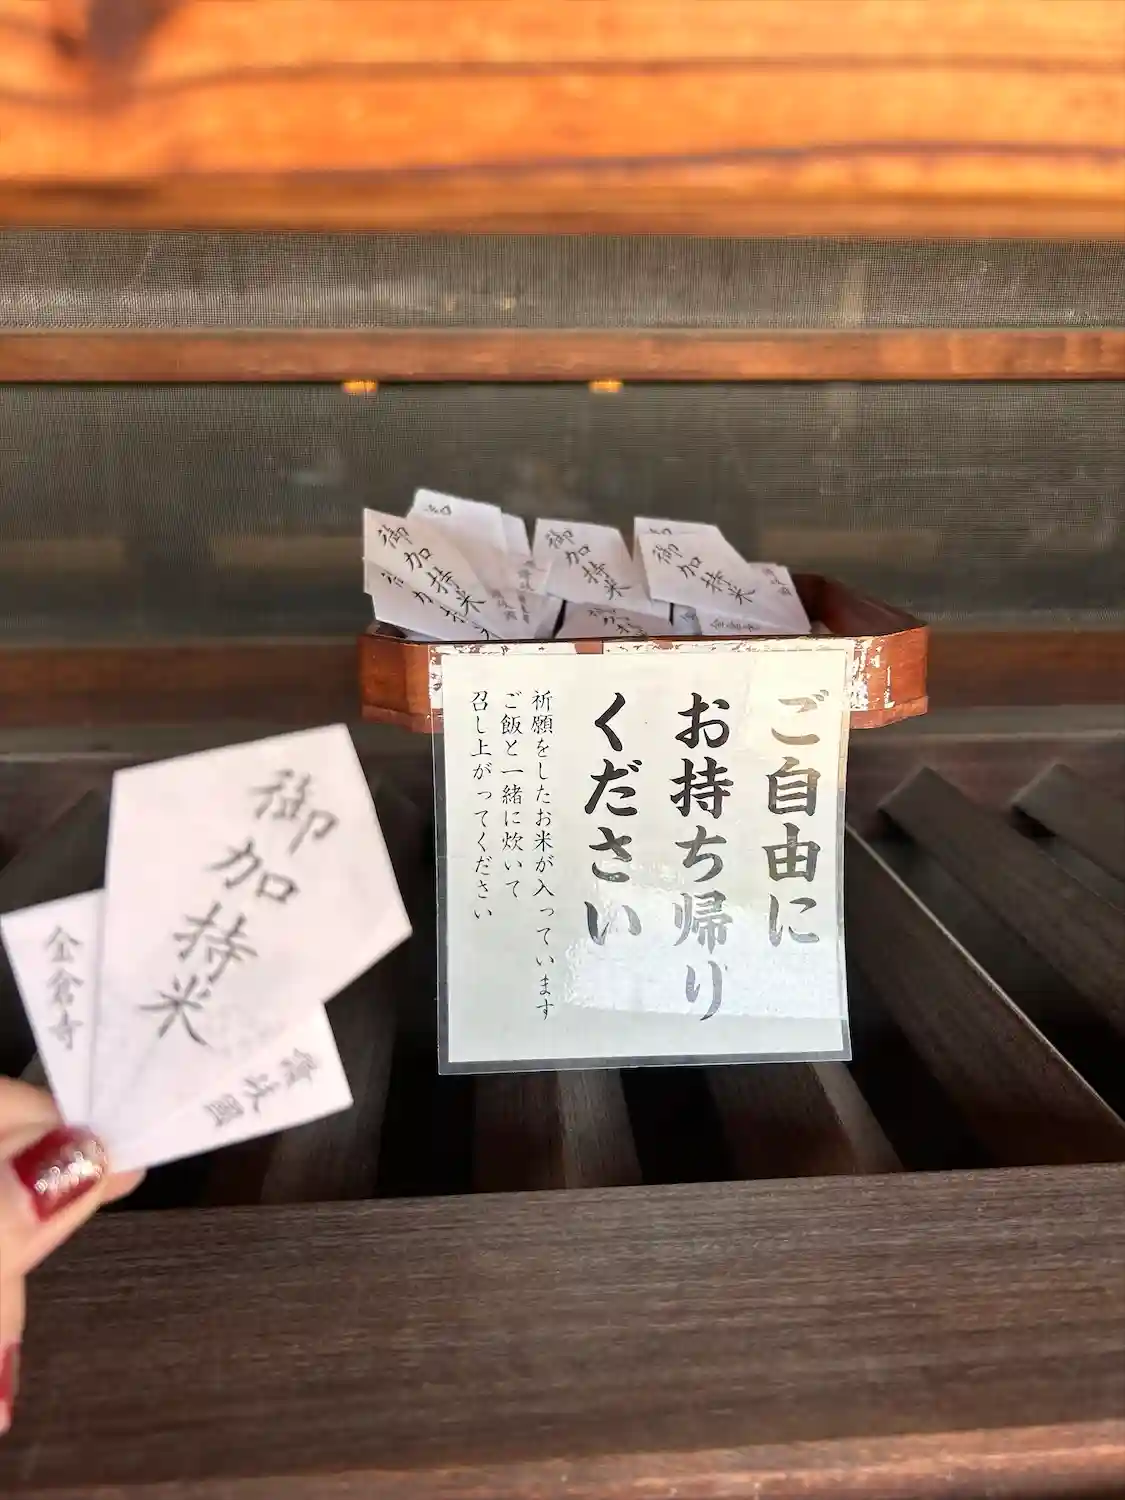 ご自由に
お持ち帰り
ください
祈願をしたお米が入っています
ご飯と一緒に炊いて
召し上がってください
御加持米
金倉寺
讃岐國
御加持米
御加持米
御加持米